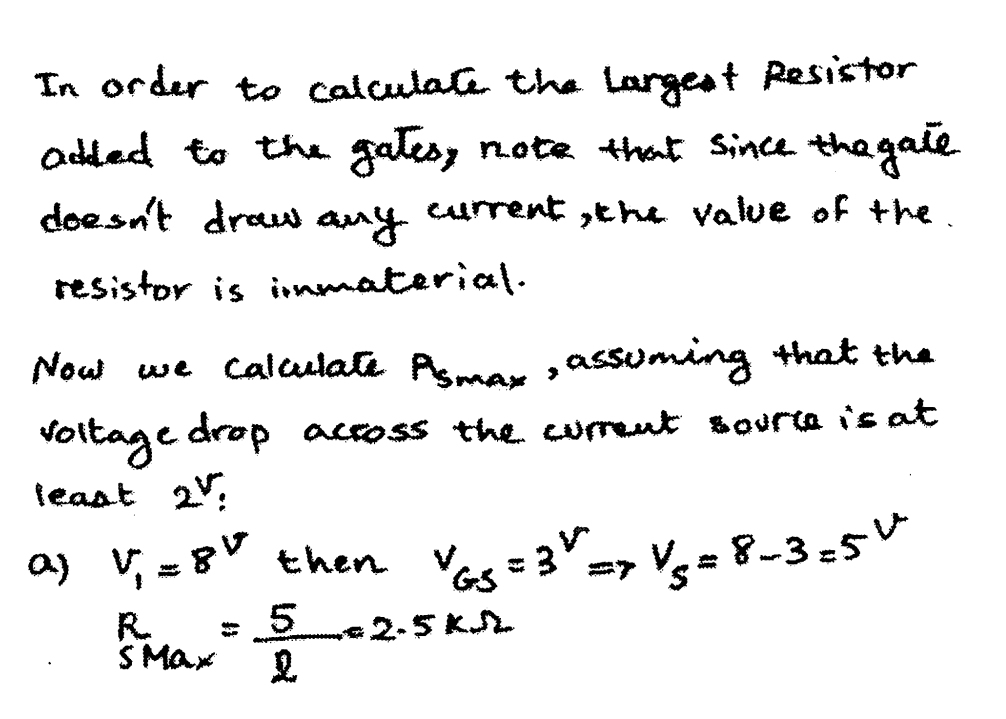 In order to calculate the Largest Resistor
added to the gates, note that since the gate
doesn't draw any current, the value of the
resistor is immaterial.
Now we calculate R_Smax, assuming that the
voltage drop across the current source is at
least 2V:
a) V₁ = 8V then V_GS = 3V ⇒ V_S = 8-3=5V
R_SMax = 5/2 = 2.5 KΩ